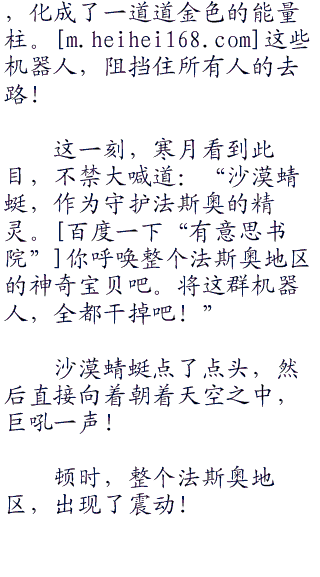 ，化成了一道道金色的能量
柱。[m.heihei168.com]这些
机器人，阻挡住所有人的去
路！
这一刻，寒月看到此
目，不禁大喊道：“沙漠蜻
蜓，作为守护法斯奥的精
灵。[百度一下“有意思书
院”]你呼唤整个法斯奥地区
的神奇宝贝吧。将这群机器
人，全都干掉吧！”
沙漠蜻蜓点了点头，然
后直接向着朝着天空之中，
巨吼一声！
顿时，整个法斯奥地
区，出现了震动！